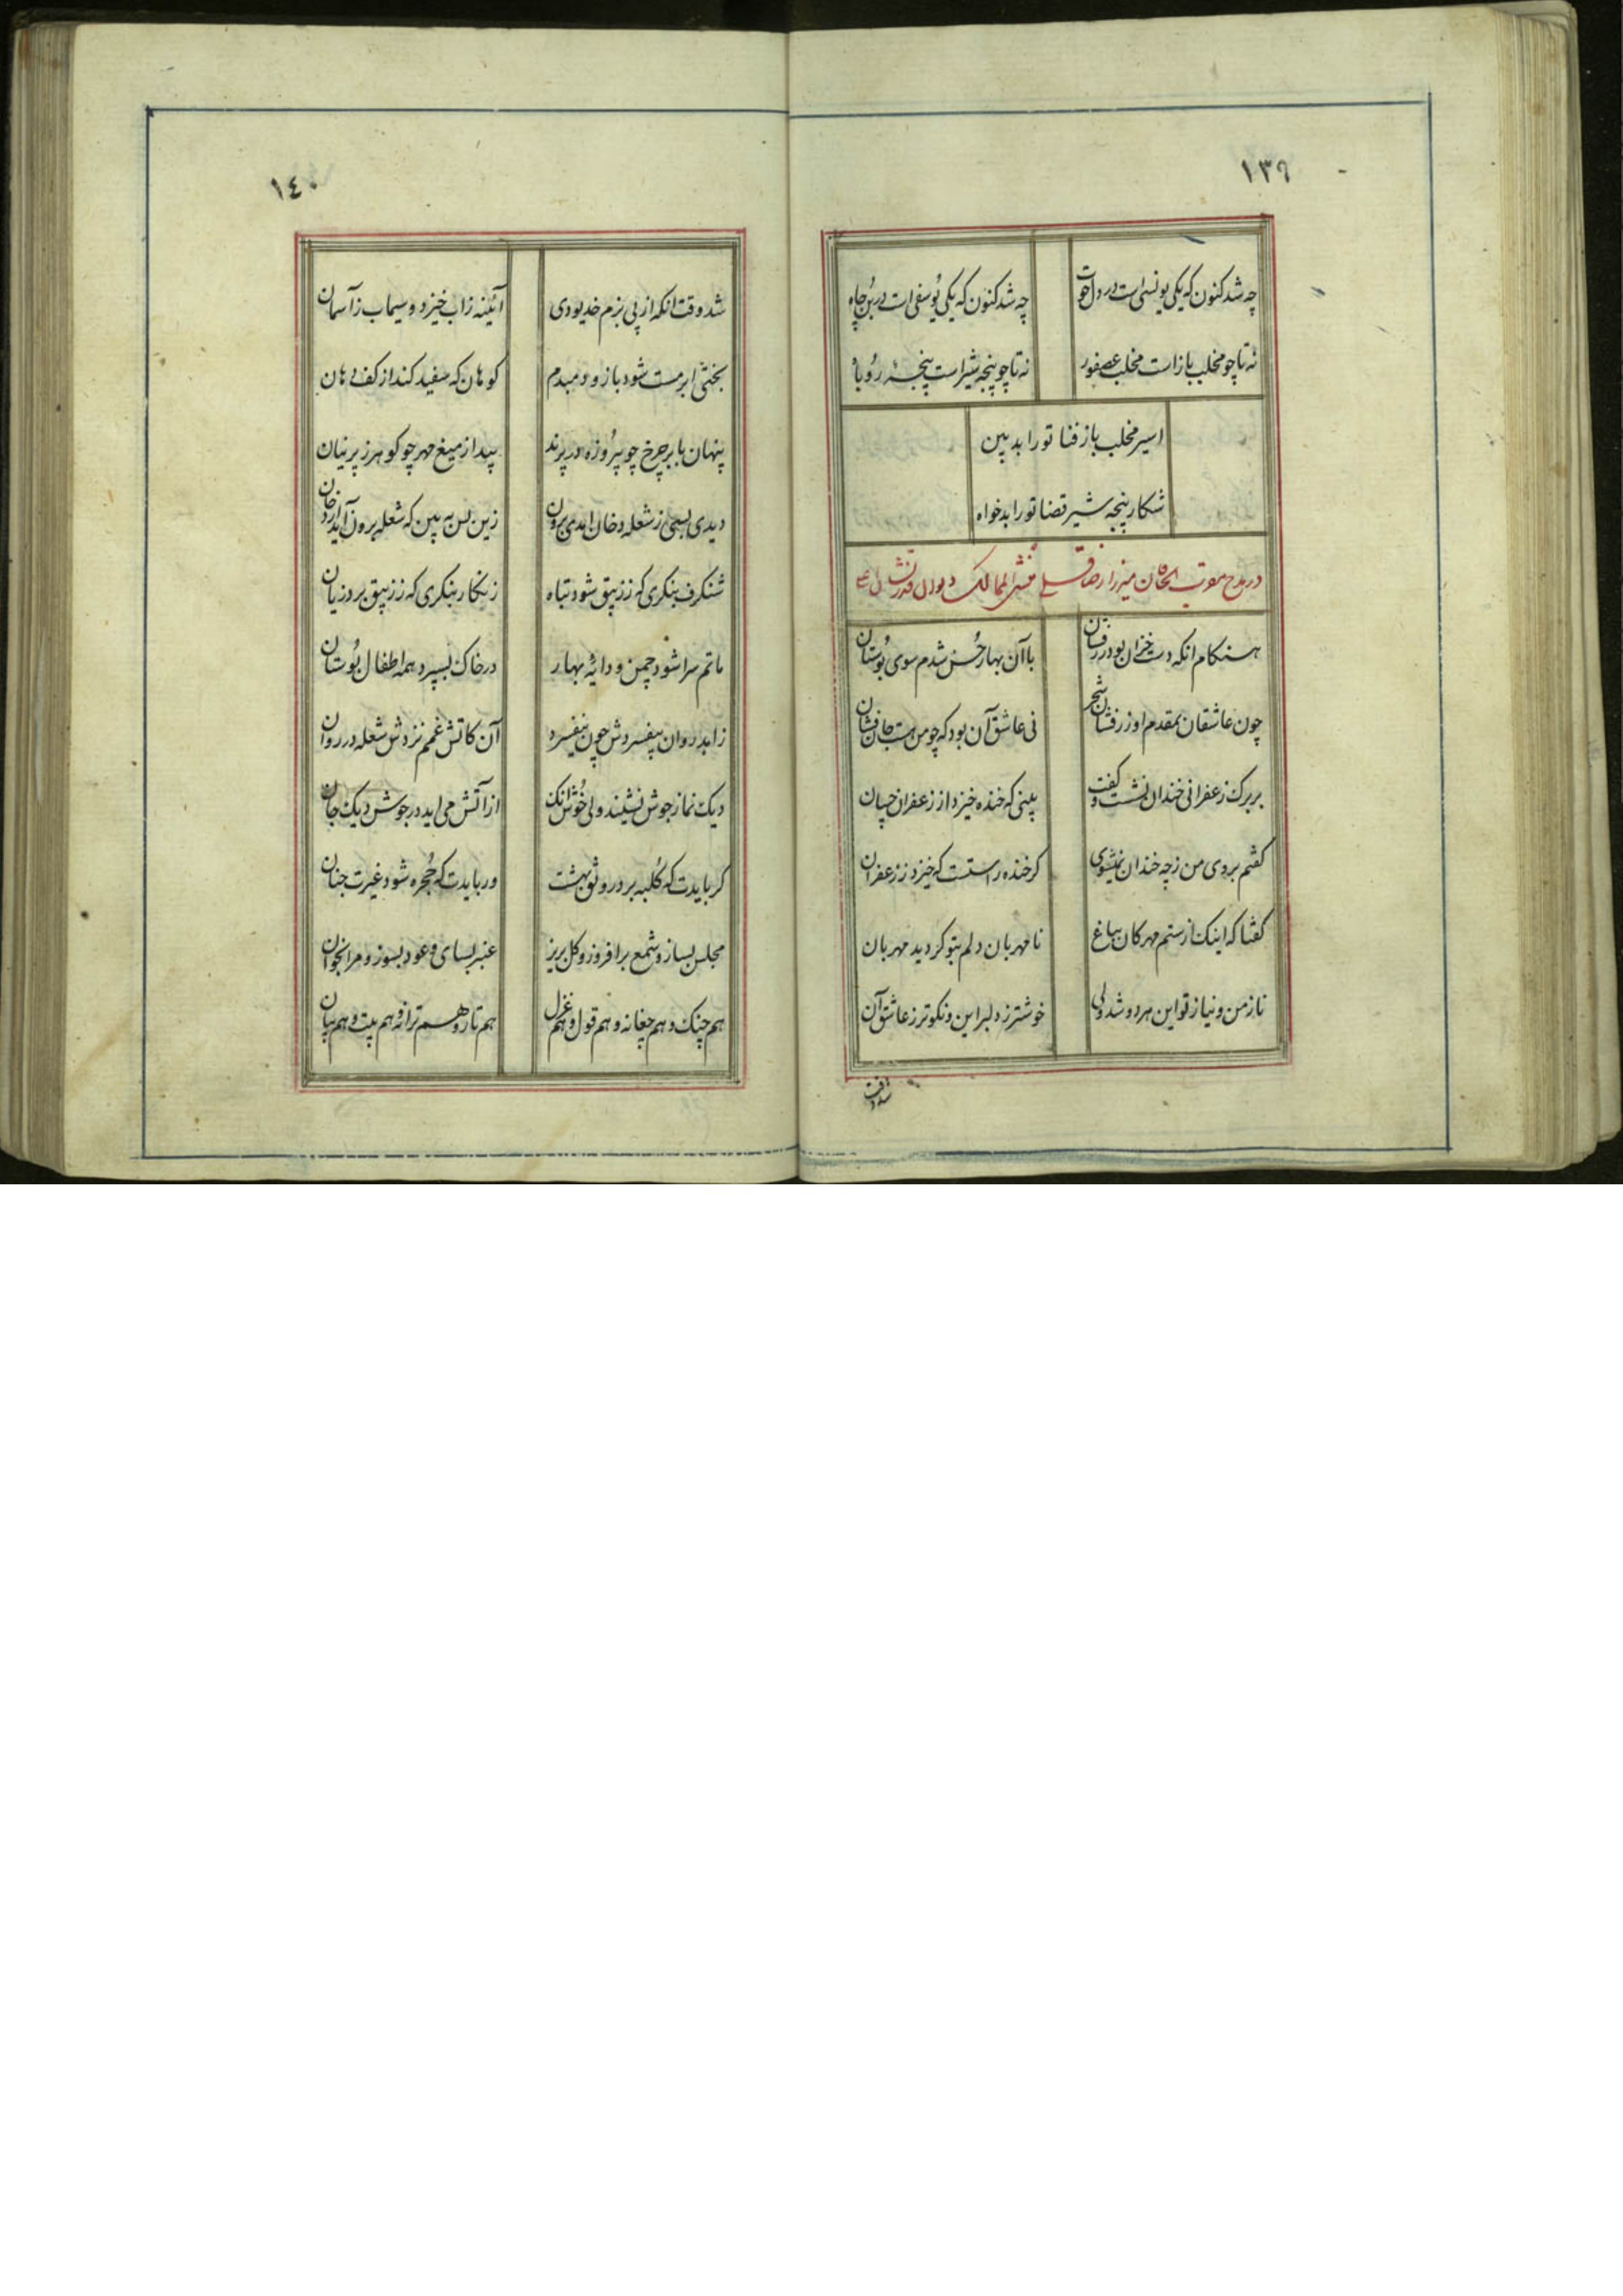 ١٣٩
چه شد کنون که یکی یونس است در دل حوت
چه شد کنون که یکی یوسفی است در بن چاه
نه تا چو مخلب باز است مخلب عصفور
نه تا چو پنجه شیر است پنجهٔ روباه
اسیر مخلب باز فنا تو را بدبین
شکار پنجه شیر قضا تو را بدخواه
در مدح میرزا رضا قلی منشی الممالک
هنگام انکه دست خزان بود زرفشان
با آن بهار حسن شدم سوی بوستان
چون عاشقان بمقدم او زرفشان شجر
نی عاشق آن بود که چو من است جان فشان
بر برک زعفرانی خندان نشست و گفت
بینی که خنده خیزد از زعفران چسان
کفتم بروی من ز چه خندان نمیشوی
کر خنده راستست که خیزد ز زعفران
کفتا که اینک از ستم مهرکان بباغ
نامهربان دلم بتو کردید مهربان
ناز من و نیاز تو این هر دو شد ولی
خوشتر ز دلبر این و نکوتر ز عاشق آن
شد وقت
١٤٠
شد وقت انکه از پی بزم خدیو دی
آئینه ز آب خیزد و سیماب ز آسمان
بختی ابر مست شود باز و دمبدم
کوهان که سفید کند از کف دهان
پنهان بابر چرخ چو پیروزه در پرند
پیدا ز میغ مهر چو کوهر ز پرنیان
دیدی بسی ز شعله دخان امدی برون
زین پس به بین که شعله برون آید از دخان
شنکرف بنکری که ز زیبق شود تباه
زنکار بنکری که ز زیبق برد زیان
ماتم سرا شود چمن و دایهٔ بهار
در خاک بسپرد همه اطفال بوستان
زاهد روان بیفسردش چون نیفسرد
آن کاتش غمم نزدش شعله در روان
دیک نماز جوش نشیند ولی خوش انک
از آتش می اید در جوش دیک جان
کر بایدت که کلبه برد رونق بهشت
ور بایدت که حجره شود غیرت جنان
مجلس بساز و شمع برافروز و کل بریز
عنبر بسای و عود بسوز و مرا بخوان
هم چنک و هم چغانه و هم قول و هم غزل
هم تار و هم ترانه و هم بیت و هم بیان